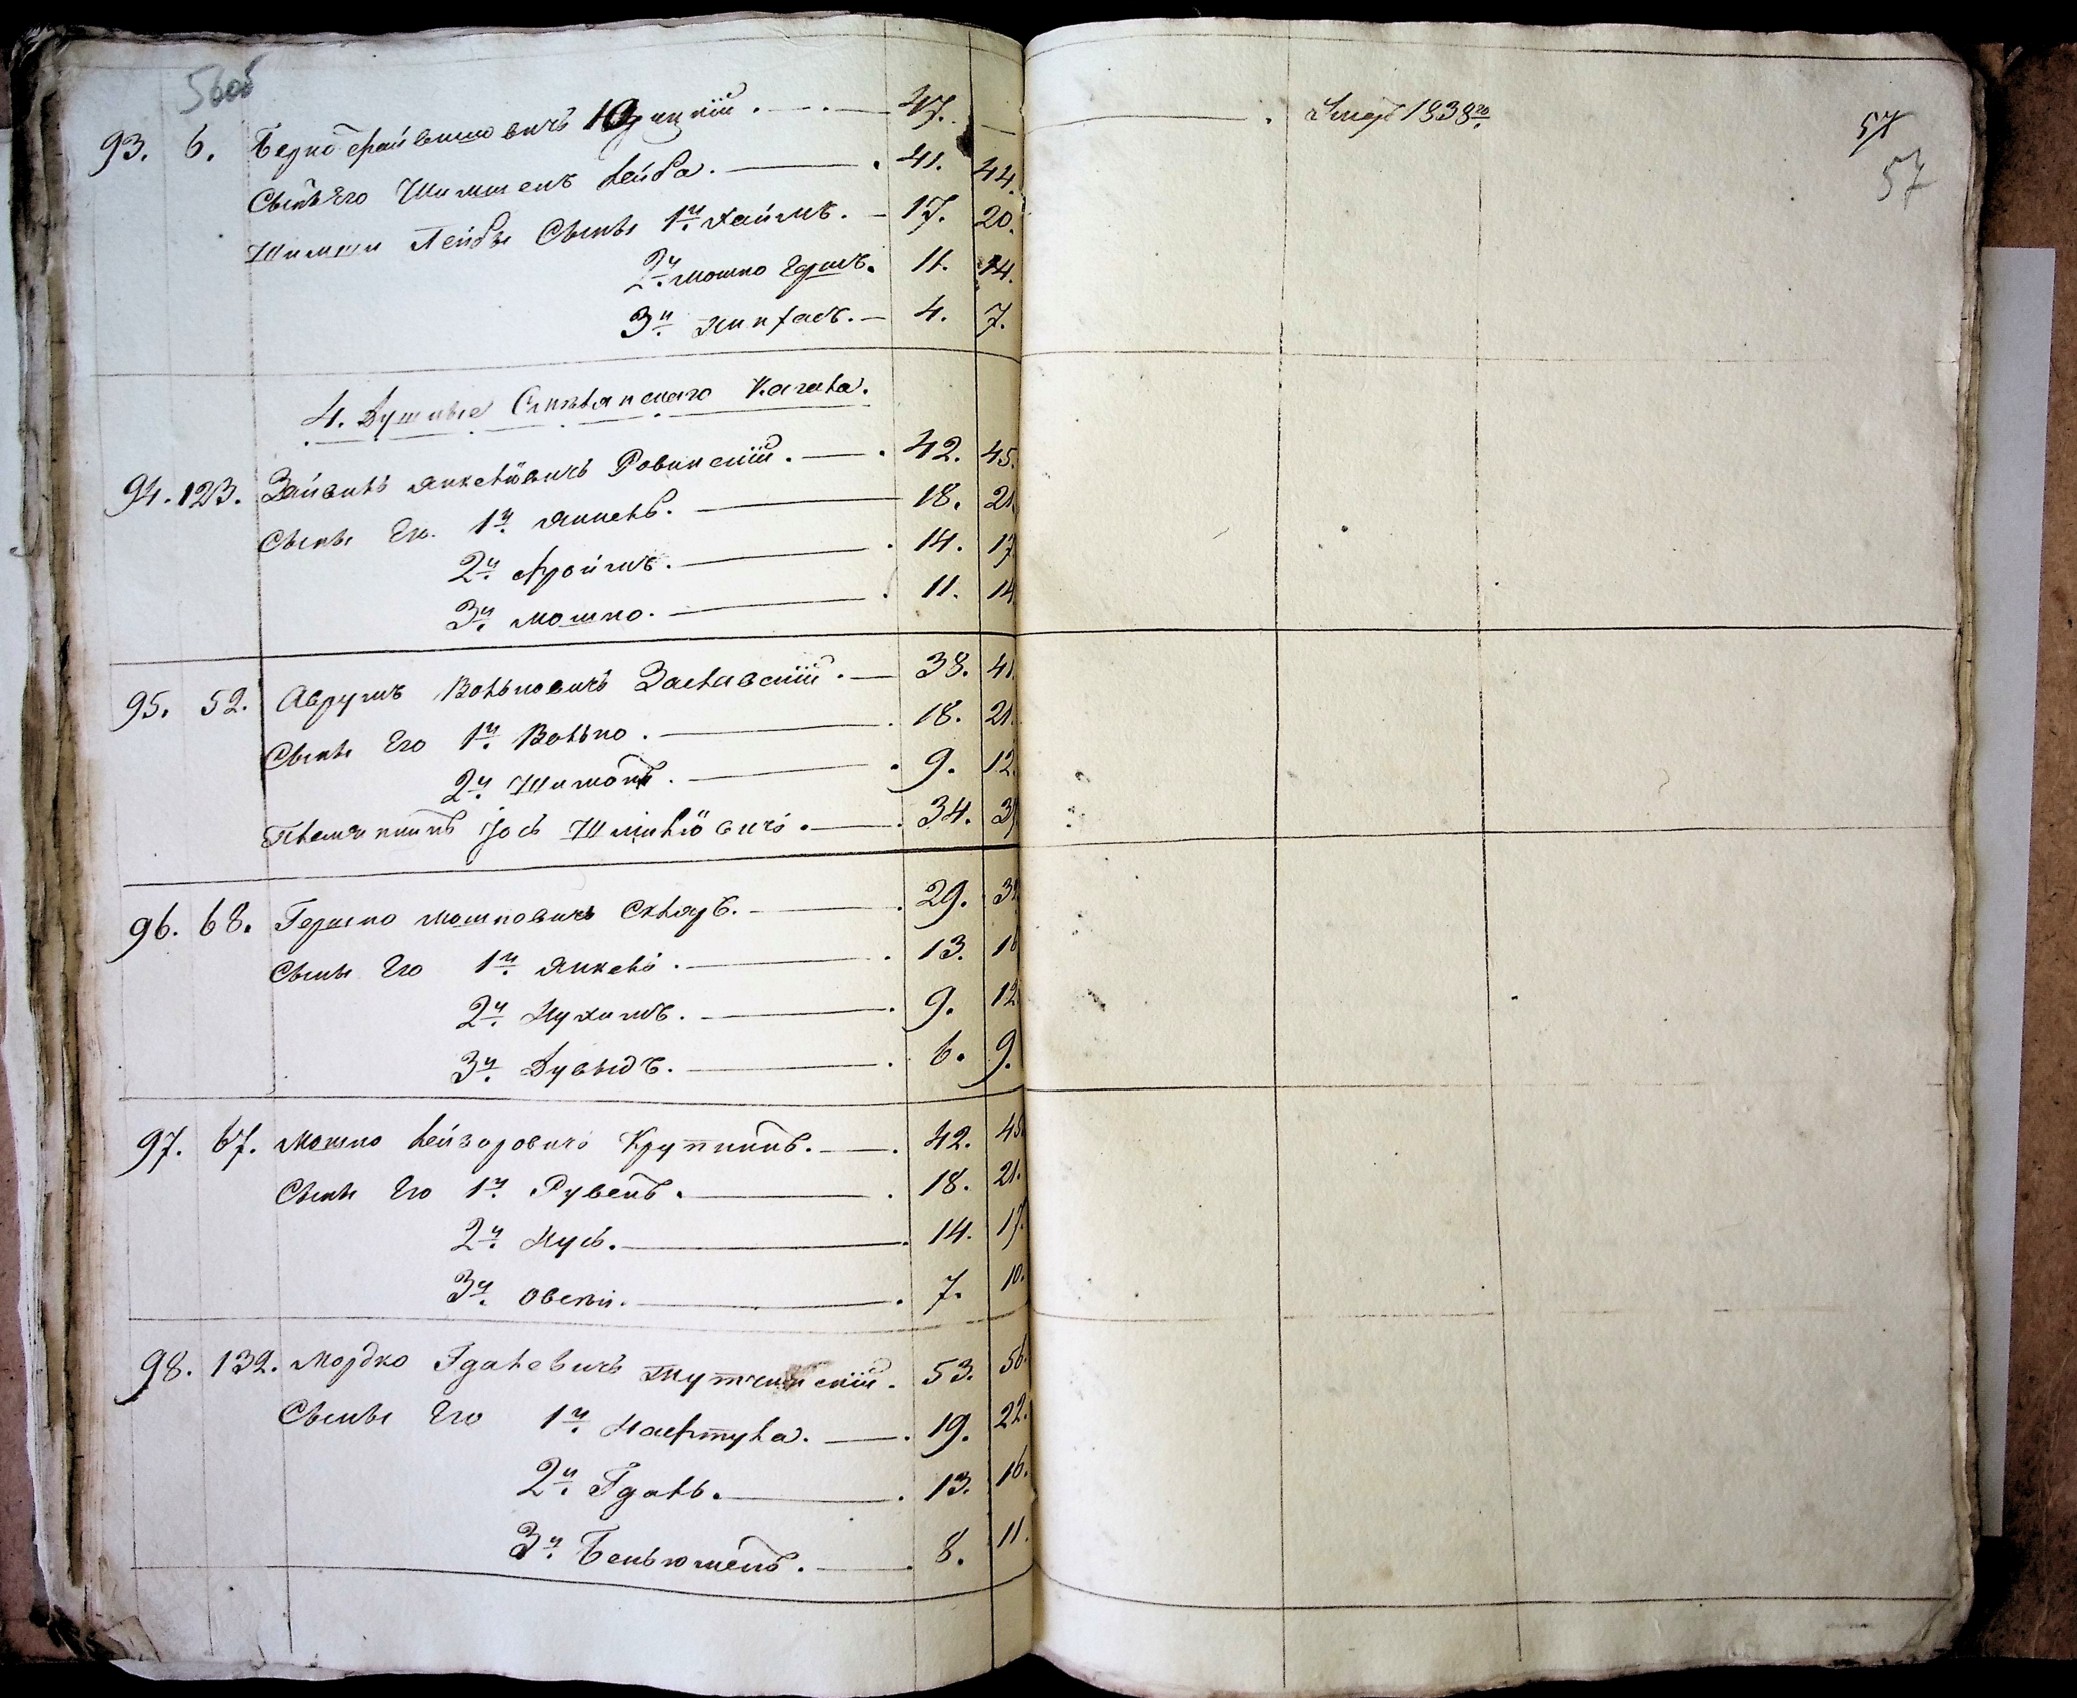 56об
93. 6. Берко Файвишовичъ Юрицкій. 47. Умеръ 1838го 57
57
Сынъ Его Шимшенъ Лейба. 41. 44.
Шимши Лейбы Сыны 1й Хаимъ. 17. 20.
2й Мошко Гершъ. 11. 14.
3й Пинхасъ. 4. 7.
4. Душные Смѣлянскаго Кагала.
94. 123. Зайвилъ Янкелiовичъ Ровинскій. 42. 45.
Сыны Его. 1й Янкель. 18. 21.
2й Фроимъ. 14. 17.
3й Мошко. 11. 14.
95. 52. Аврумъ Волковичъ Заславскій. 38. 41.
Сыны Его 1й Волько. 18. 21.
2й Шимонъ. 9. 12.
Племянникъ Іось Шмилiовичъ. 34. 37
96. 68. Гершко Мошковичъ Скляръ. 29. 32
Сыны Его 1й Янкель. 13. 16
2й Нухимъ. 9. 12.
3й Дувыдъ. 6. 9.
97. 67. Мошко Лейзоровичъ Крупникъ. 42. 45.
Сыны Его 1й Рувенъ. 18. 21.
2й Нусь. 14. 17.
3й Овсѣй. 7. 10.
98. 132. Мордко Гдалевичъ 53. 56.
Сыны Его 1й Нафтула. 19. 22.
2й Гдаль. 13. 16.
3й Беньюменъ. 8. 11.